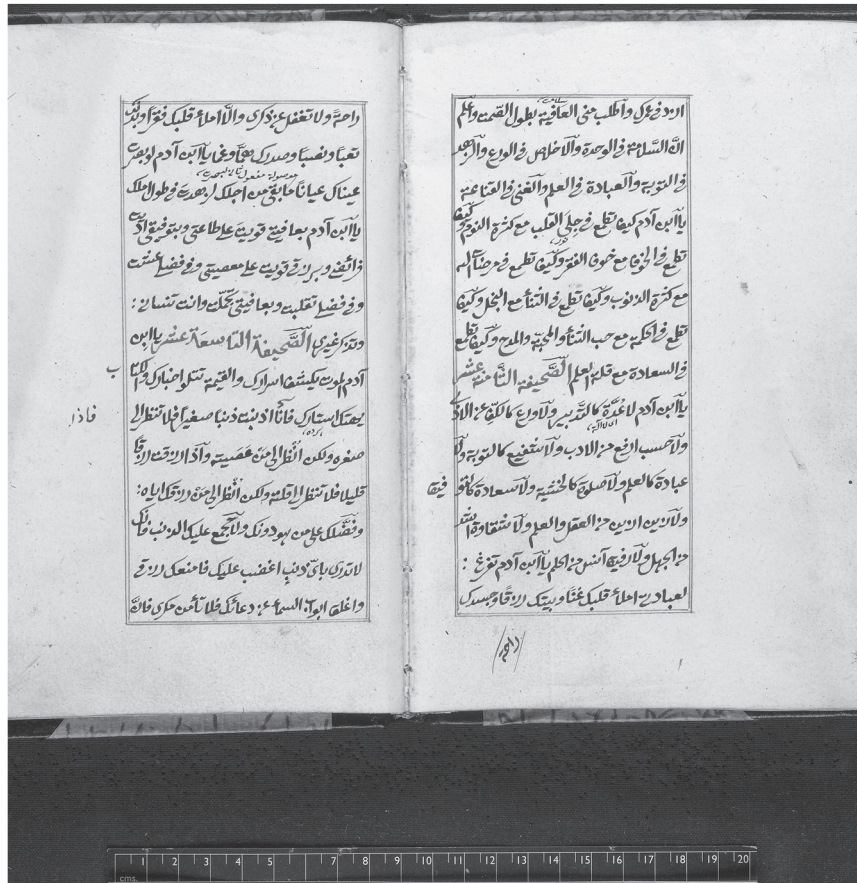 ازد فى عمرك واطلب منى العافية بطول الصمت واعلم
ان السلامة فى الوحدة والاخلاص فى الورع والزهد
فى التوبة والعبادة فى العلم والغنى فى القناعة
يا ابن آدم كيف تطمع فى جلى القلب مع كثرة النوم وكيف
تطمع فى الخوف مع خوف الفقر وكيف تطمع فى مرضات الله
مع كثرة الذنوب وكيف تطمع فى الثناء مع البخل وكيف
تطمع فى الحكمة مع حب الثناء والمحبة والمدح وكيف تطمع
فى السعادة مع قلة العلم الصحيفة الثامنة عشر
يا ابن آدم لا عدة كالتدبير ولا ورع كالكف عن الاذى
ولا حسب ارفع من الادب ولا شفيع كالتوبة ولا
عبادة كالعلم ولا صلوة كالخشية ولا سعادة كالتو
فيق
ولا زين ازين من العقل والعلم ولا شقاوة اشد
من الجهل ولا رفيق آنس من الحلم يا ابن آدم تفرغ :
لعبادتى املاء قلبك غنا وبيتك رزقا وجسدك
راحة
راحة ولا تغفل عن ذكرى والا املاء قلبك فقرا وبدنك
تعبا ونصبا وصدرك هما وغما يا ابن آدم لو بصرت
عيناك عيانا ما بقى من اجلك لزهدت فى طول املك
يا ابن آدم بعافيتى قويت على طاعتى وبتوفيقى اديت
فرائضى وبرزقى قويت على معصيتى وفى فضلى عشت
وفى فضلى تقلبت وبعافيتى تجملت وانت تنسانى :
وتذكر غيرى الصحيفة التاسعة عشر يا ابن
آدم الموت يكشف اسرارك والقيمة تتلو اخبارك والكتاب
ب
يهتك استارك فاذا اذنبت ذنبا صغيرا فلا تنظر الى
فاذا
صغره ولكن انظر الى من عصيته واذا رزقت رزقا
قليلا فلا تنظر الى قلته ولكن انظر الى من رزقك اياه :
وفضلك على من هو دونك ولا تجمع عليك الذنب فانك
لا تدرى باى ذنب اغضب عليك فامنعك رزقى
واغلق ابواب السماء عن دعائك فلا تأمن مكرى فانه